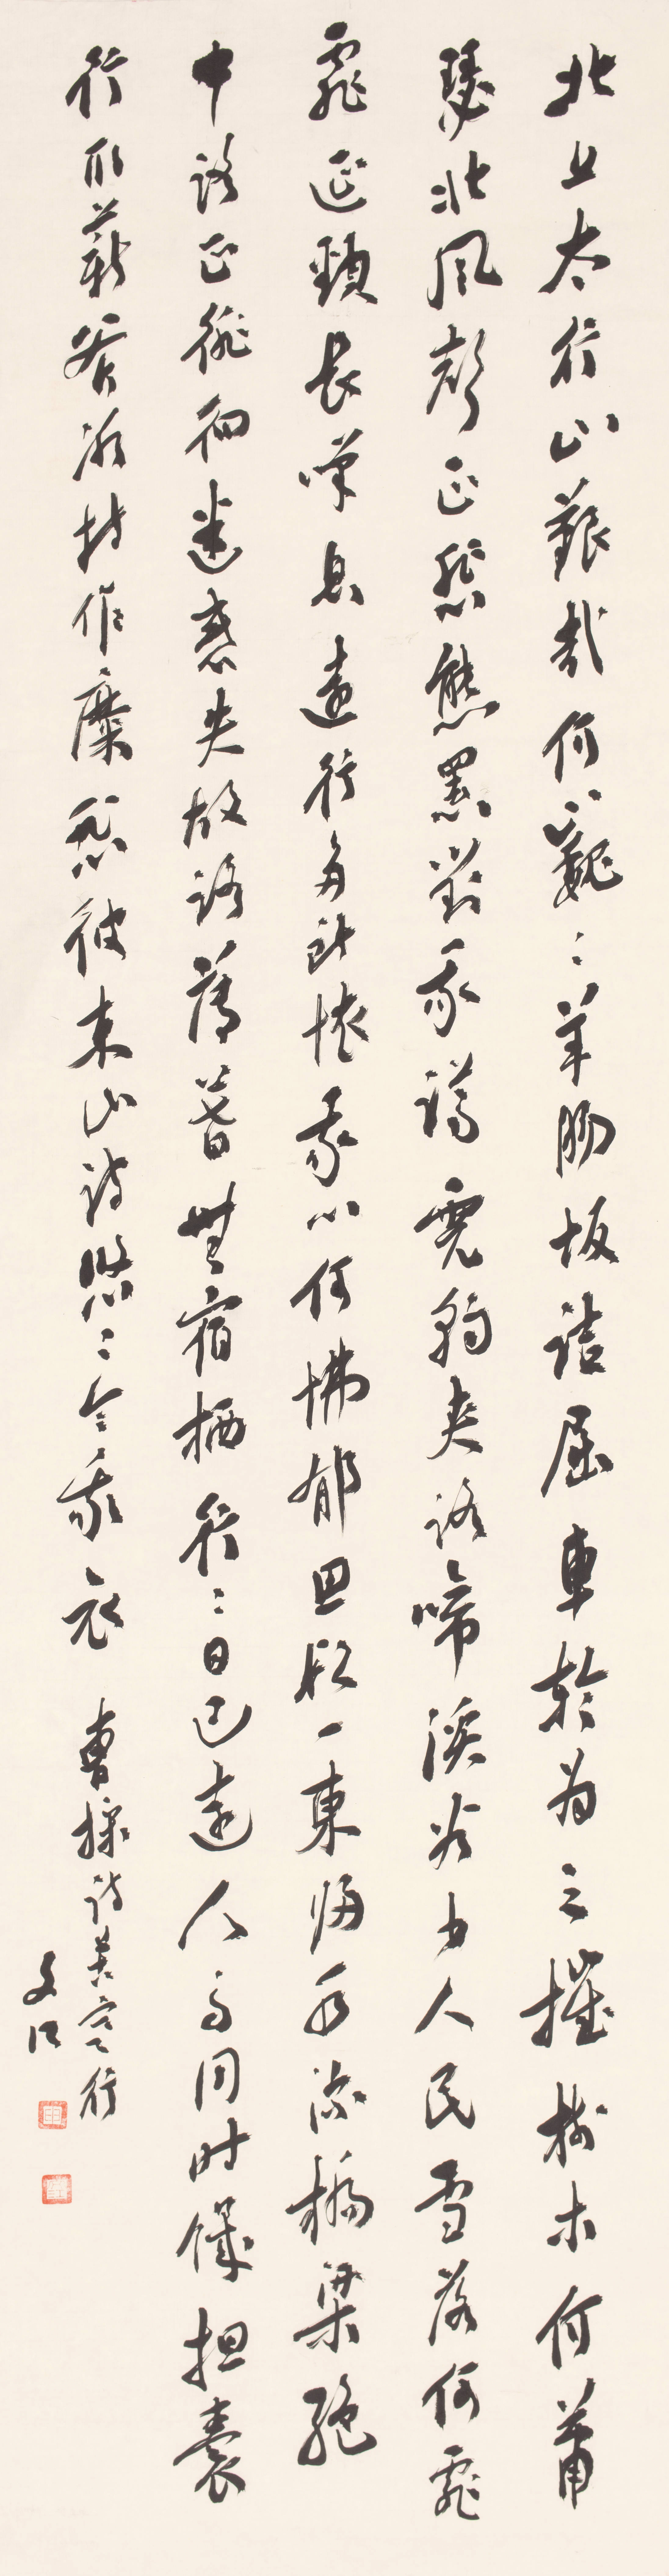 北上太行山艱哉何巍〻羊腸坂詰屈車輪為之摧樹木何蕭
瑟北風聲正悲熊羆對我蹲虎豹夾路啼溪谷少人民雪落何霏
霏延頸長嘆息遠行多所懷我心何怫郁思欲一東歸水深橋梁絕
中路正徘徊迷惑失故路薄暮無宿栖行〻日已遠人馬同時饑担囊
行取薪斧冰持作糜悲彼東山詩悠〻令我哀 曹操詩苦寒行
文